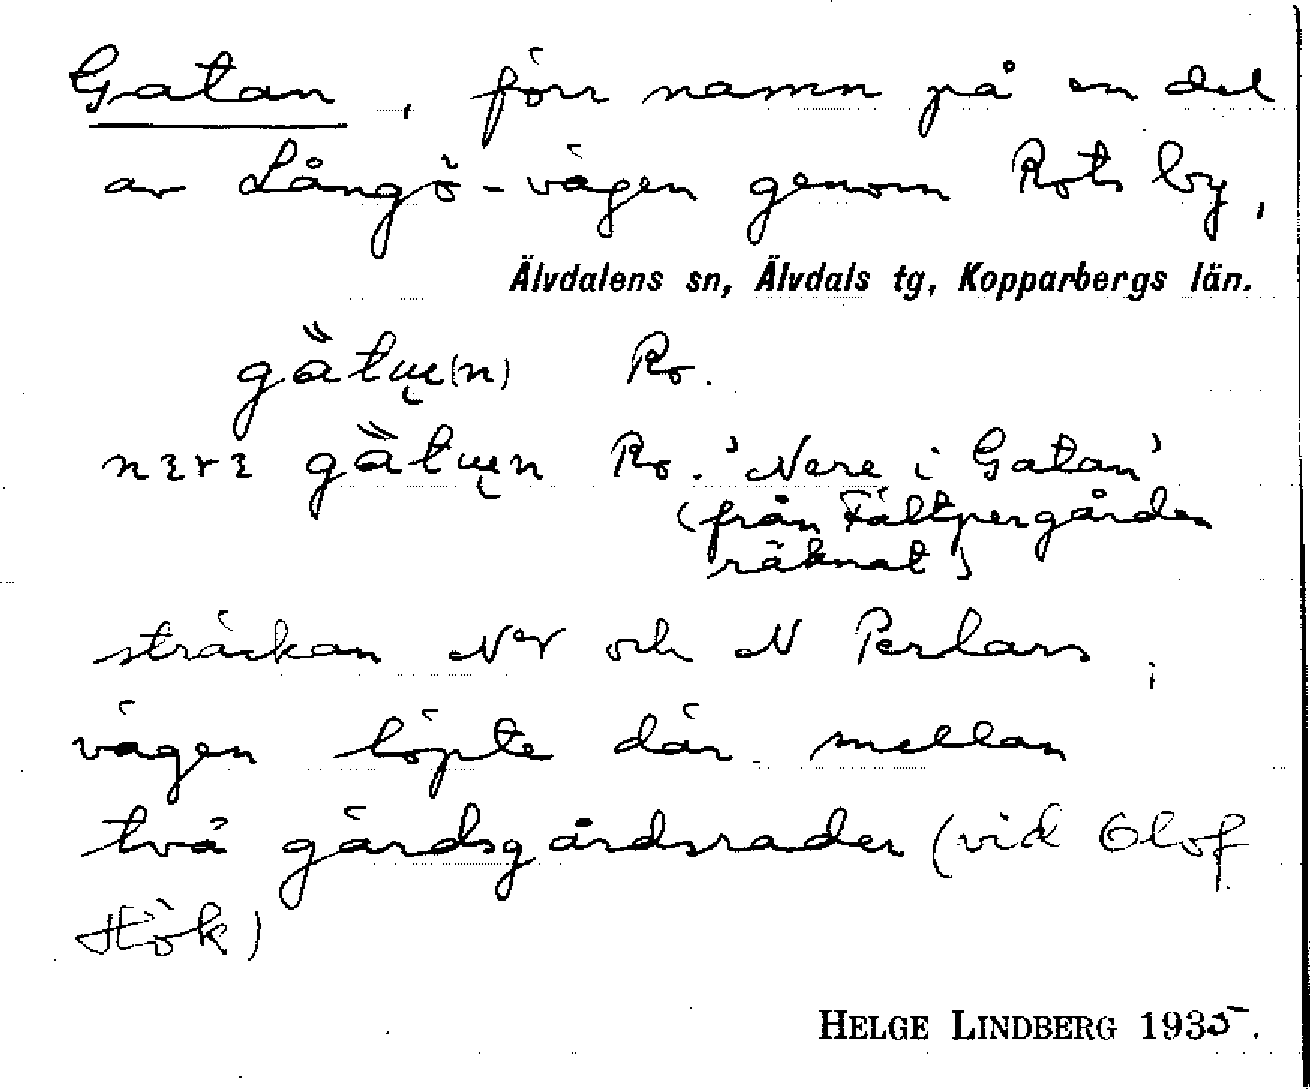 Gatan, förr namn på en del
av Långö-vägen genom Rots by,
Älvdalens sn, Älvdals tg, Kopparbergs län.
gȁtuę(n) Ro.
nɛrɛ gȁtuęn Ro. 'Nere i Gatan'
(från Fältpergården
räknat)
sträckan NV och N Perlars;
vägen löpte där mellan
två gärdsgårdsrader (vid Olof
Hök)
HELGE LINDBERG 1935.